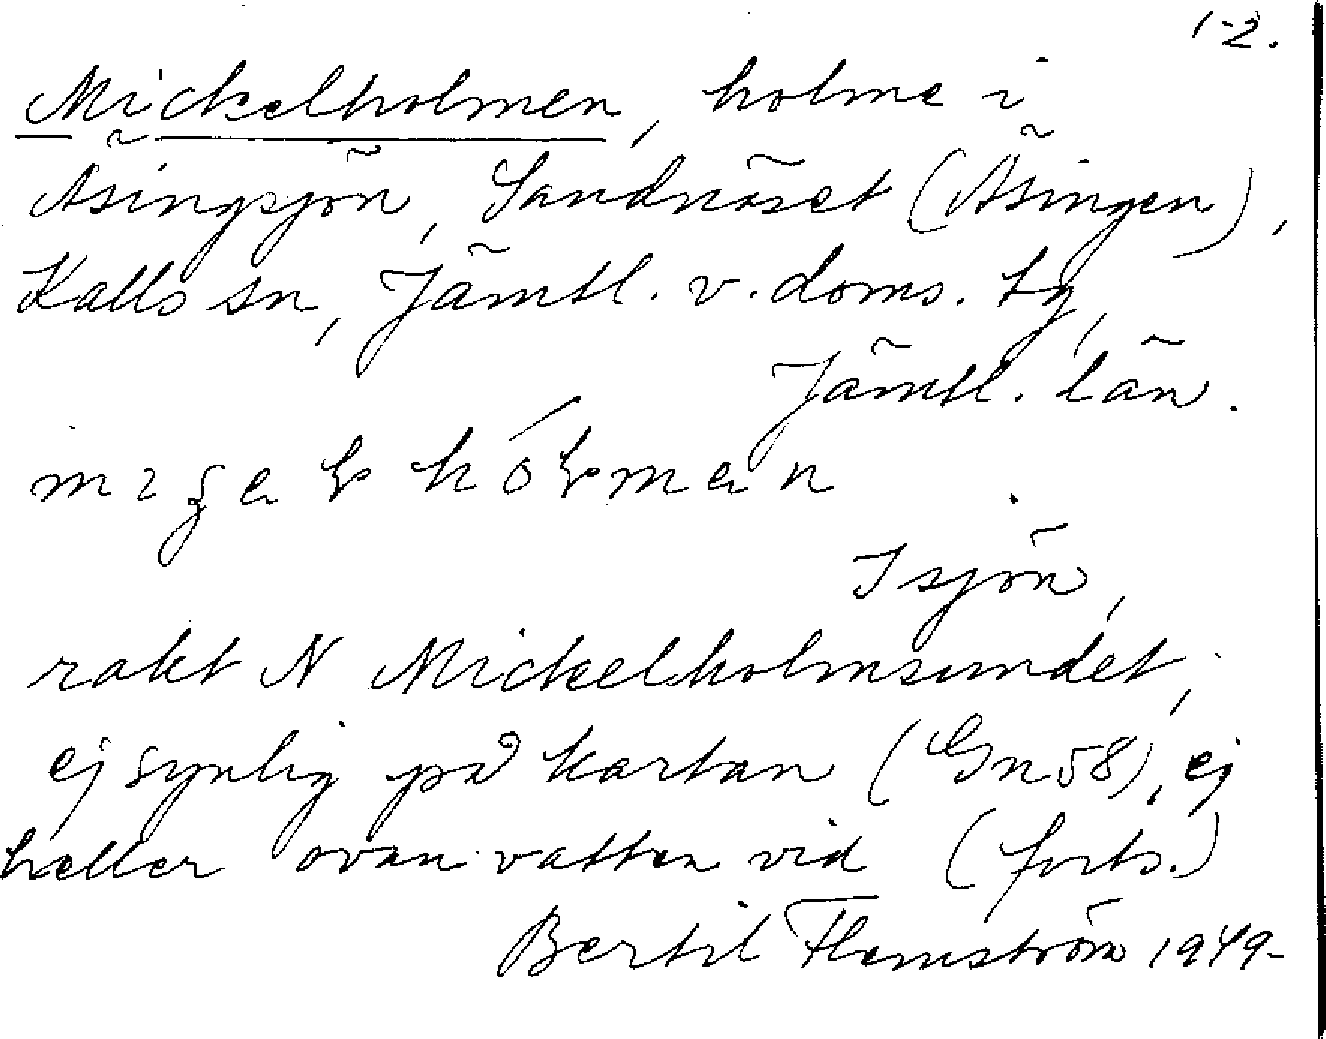 1-2.
Mickelholmen, holme i
Äsingsjön, Sandnäset (Äsingen),
Kalls sn, Jämtl. v. doms. tg,
Jämtl. län.
I sjön,
rakt N Mickelholmsundet,
ej synlig på kartan (Gn 58), ej
heller ovan vatten vid (forts.)
Bertil Flemström 1949-